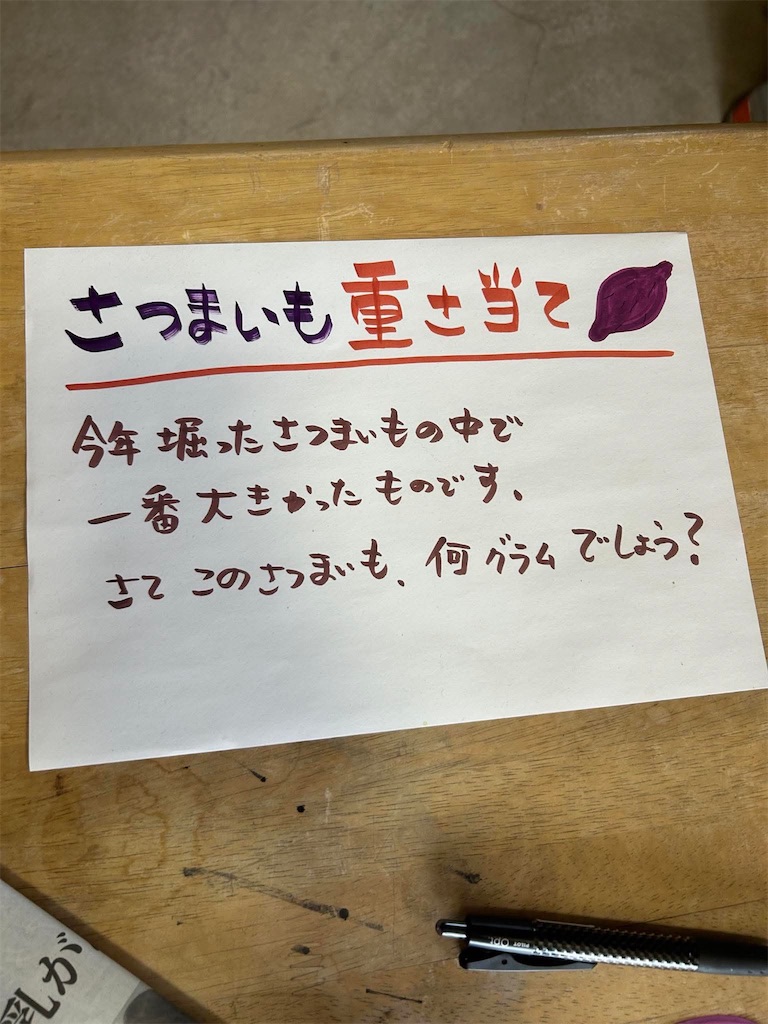 さつまいも重さ当て
今年堀ったさつまいもの中で
一番大きかったものです、
さて このさつまいも、何グラムでしょう?
PILOT Opt
乳が